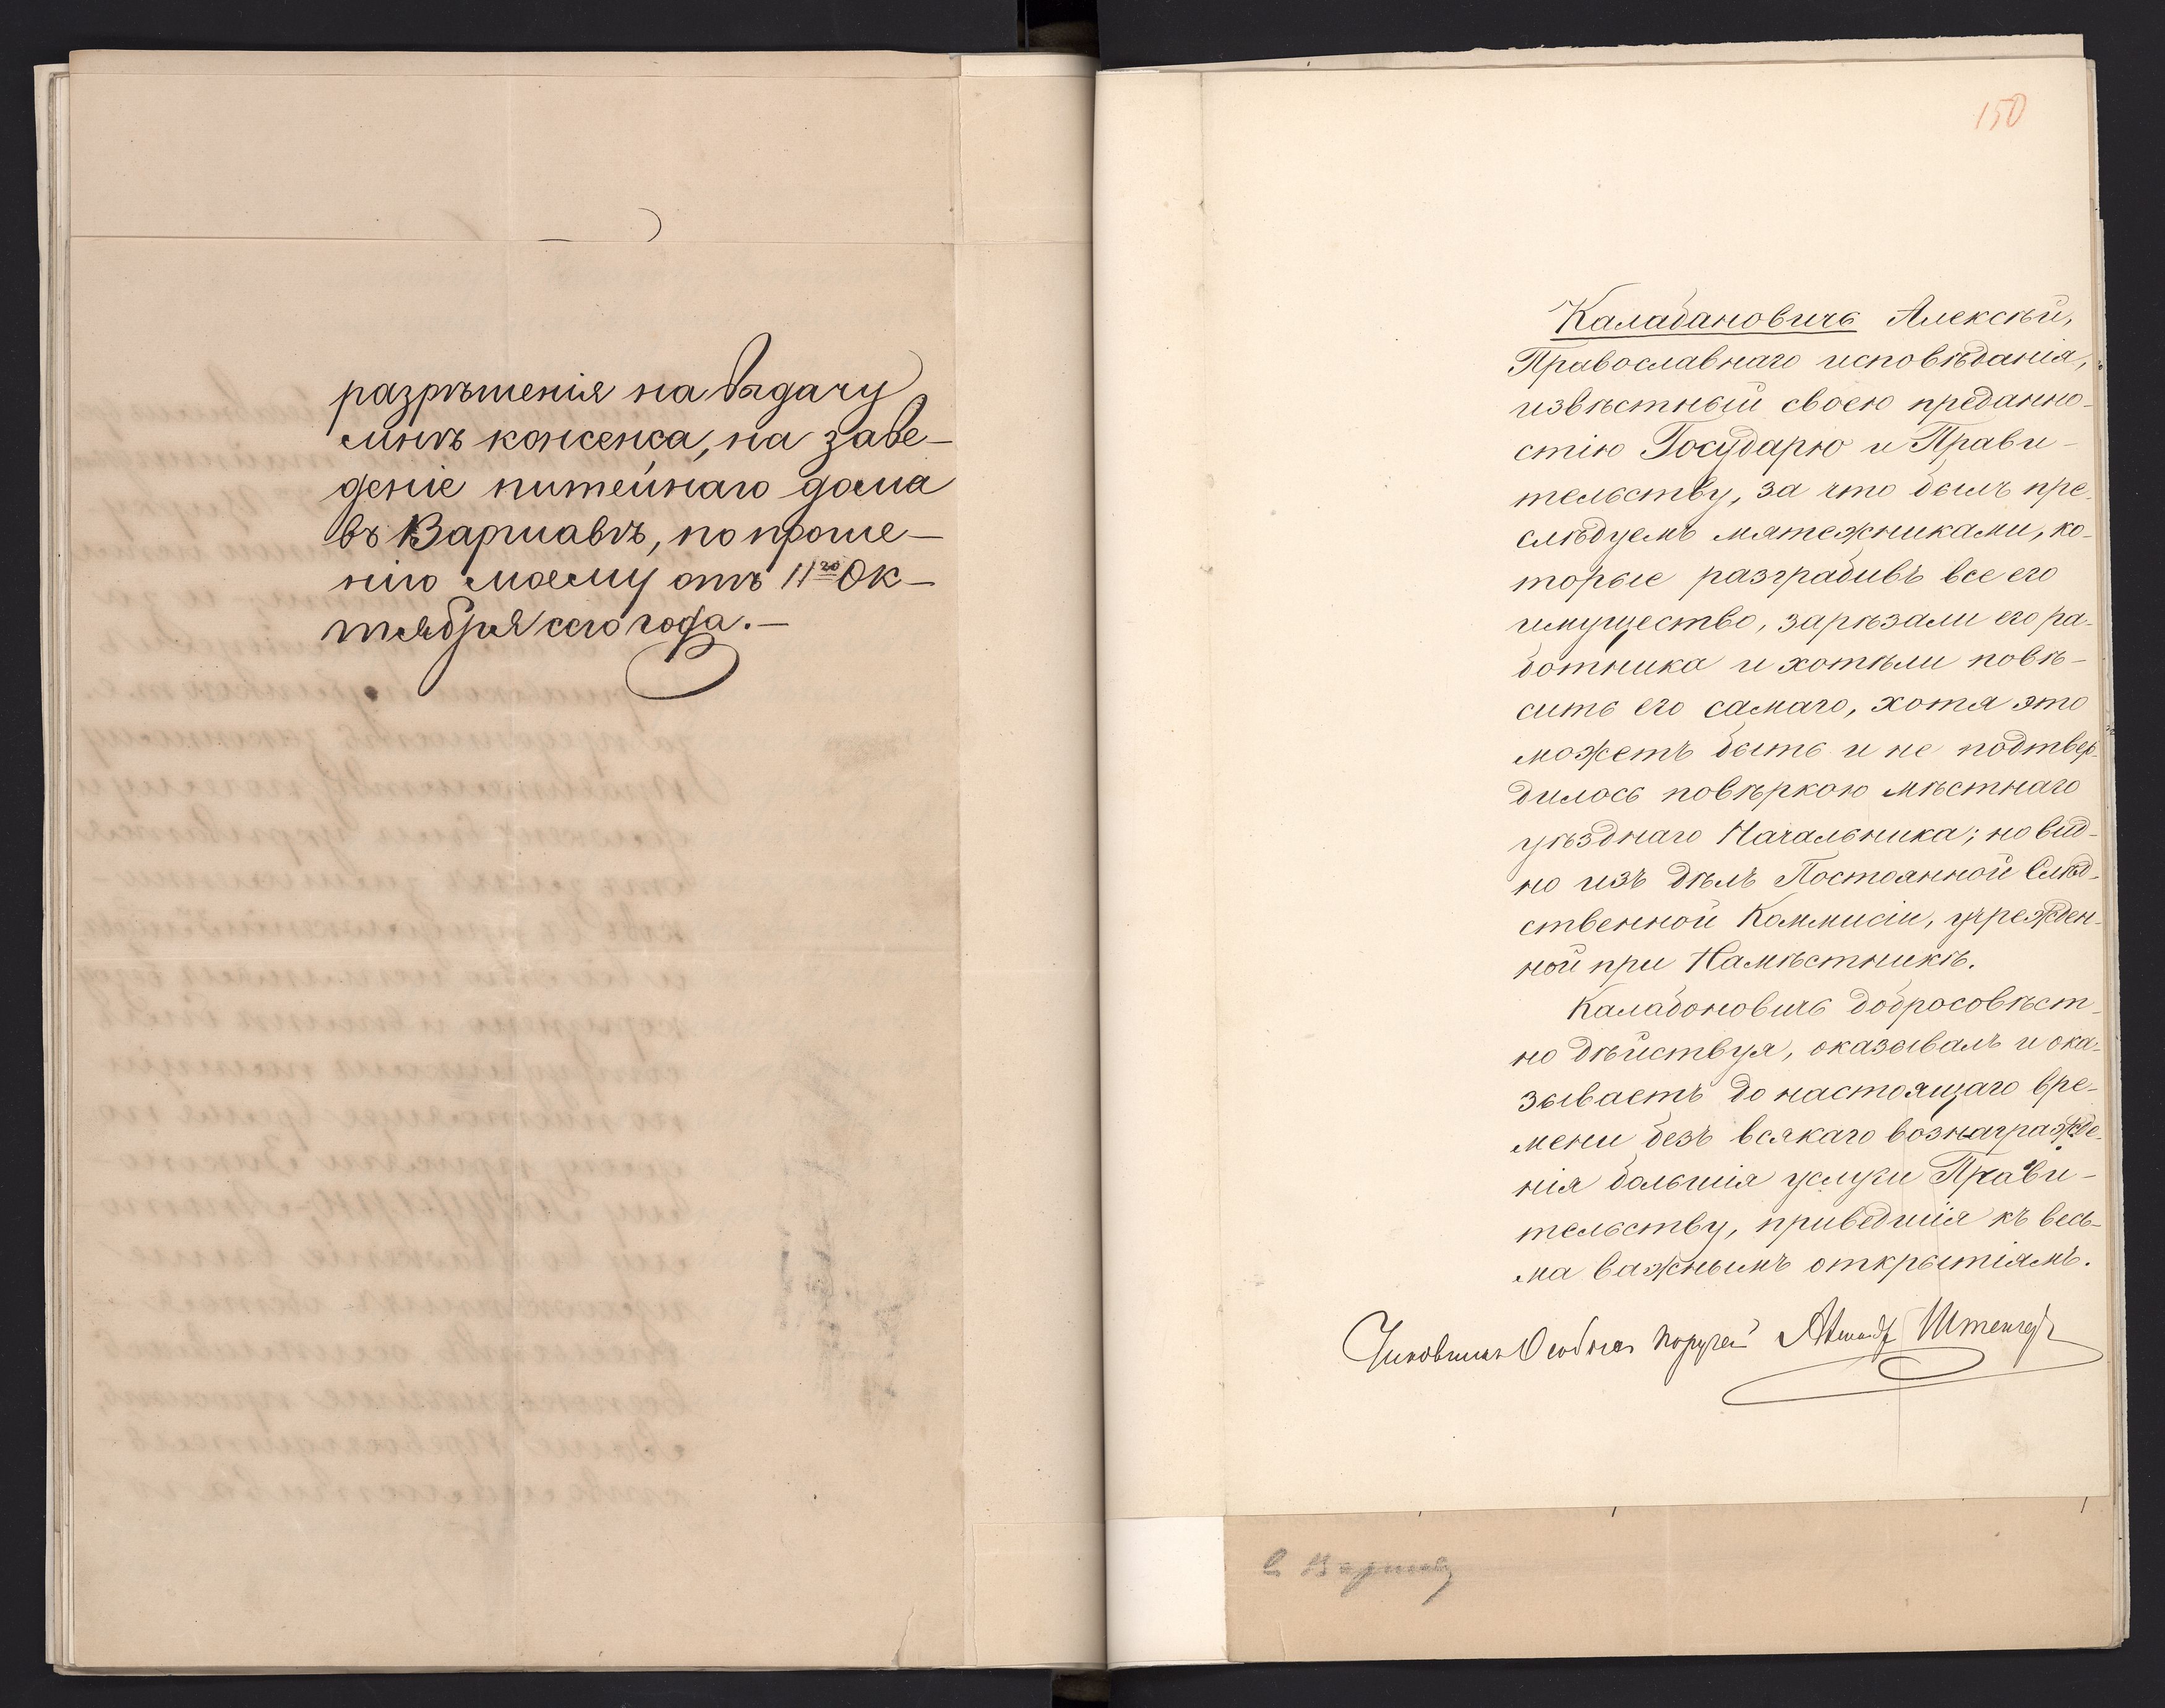 разрѣшенія на выдачу
мнѣ консенса, на заве-
деніе питейнаго дома
въ Варшавѣ, по проше-
нію моему отъ 11го Ок-
тября сего года.-
150
Калабановичь Алексѣй,
Православнаго исповѣданія,
извѣстный своею преданно-
стію Государю и Прави-
тельству, за что былъ пре-
слѣдуемъ мятежниками, ко-
торые разграбивъ все его
имущество, зарѣзали его ра-
ботника и хотѣли повѣ-
сить его самаго, хотя это
можетъ быть и не подтвер-
дилось повѣркою мѣстнаго
уѣзднаго Начальника; но вид-
но изъ дѣлъ Постоянной Слѣд-
ственной Коммисіи, учрежден-
ной при Намѣстникѣ.
Калабоновичь добросовѣст-
но дѣйствуя, оказывалъ и ока-
зываетъ до настоящаго вре-
мени безъ всякаго вознагражде-
нія большія услуги Прави-
тельству, приведшія къ весь-
ма важнымъ открытіямъ.
Чиновникъ Особыхъ Поруче